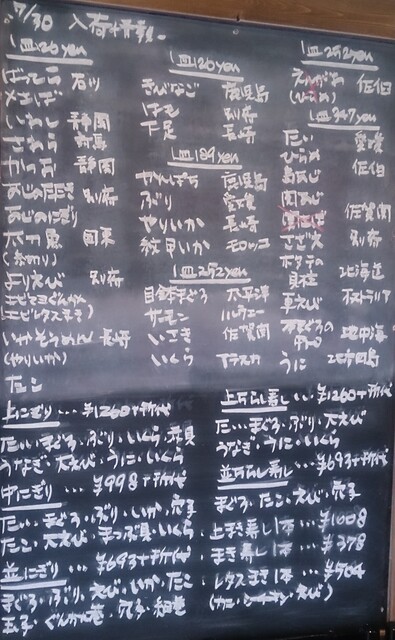 7/30 入荷
1皿120yen
ばってら 石川
〆さば
いわし 静岡
さわら
かつお 静岡
あじのたたき 別府
あじのにぎり
太刀魚 国東
よりえび 別府
いかそうめん 長崎
(やりいか)
たこ
1皿120yen
きびなご 鹿児島
はも 別府
げそ 長崎
1皿189yen
かんぱち 鹿児島
ぶり 愛媛
やりいか 長崎
紋甲いか モロッコ
1皿252yen
目鉢まぐろ 太平洋
サーモン ノルウェー
いさき 佐賀関
いくら アラスカ
1皿292yen
えんがわ 佐伯
(ひらめ)
1皿347yen
たい 愛媛
ひらめ 佐伯
島あじ
関あじ 佐賀関
関さば
さざえ 別府
ホタテの
貝柱 北海道
車えび
本まぐろの 地中海
うに
上にぎり…¥1260
たい・まぐろ・ぶり・いくら・
うなぎ・大えび・うに・いくら
中にぎり…¥998
たい・まぐろ・ぶり・いか・穴子
たこ・大えび・つぶ貝・いくら
並にぎり…¥693
まぐろ・ぶり・えび・いか・たこ
玉子・ぐんかん巻・穴子・細巻
上ちらし寿し…¥1260
たい・まぐろ・ぶり・大えび
うなぎ・うに・いくら
並ちらし寿し…¥693
まぐろ・たこ・えび・穴子
上まき寿し1本…¥1008
まき寿し1本…¥378
レタスまき1本…¥504